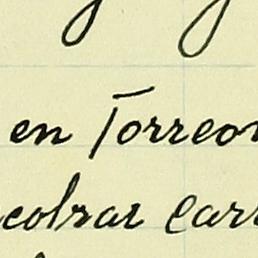 en Torreon
colrar carr